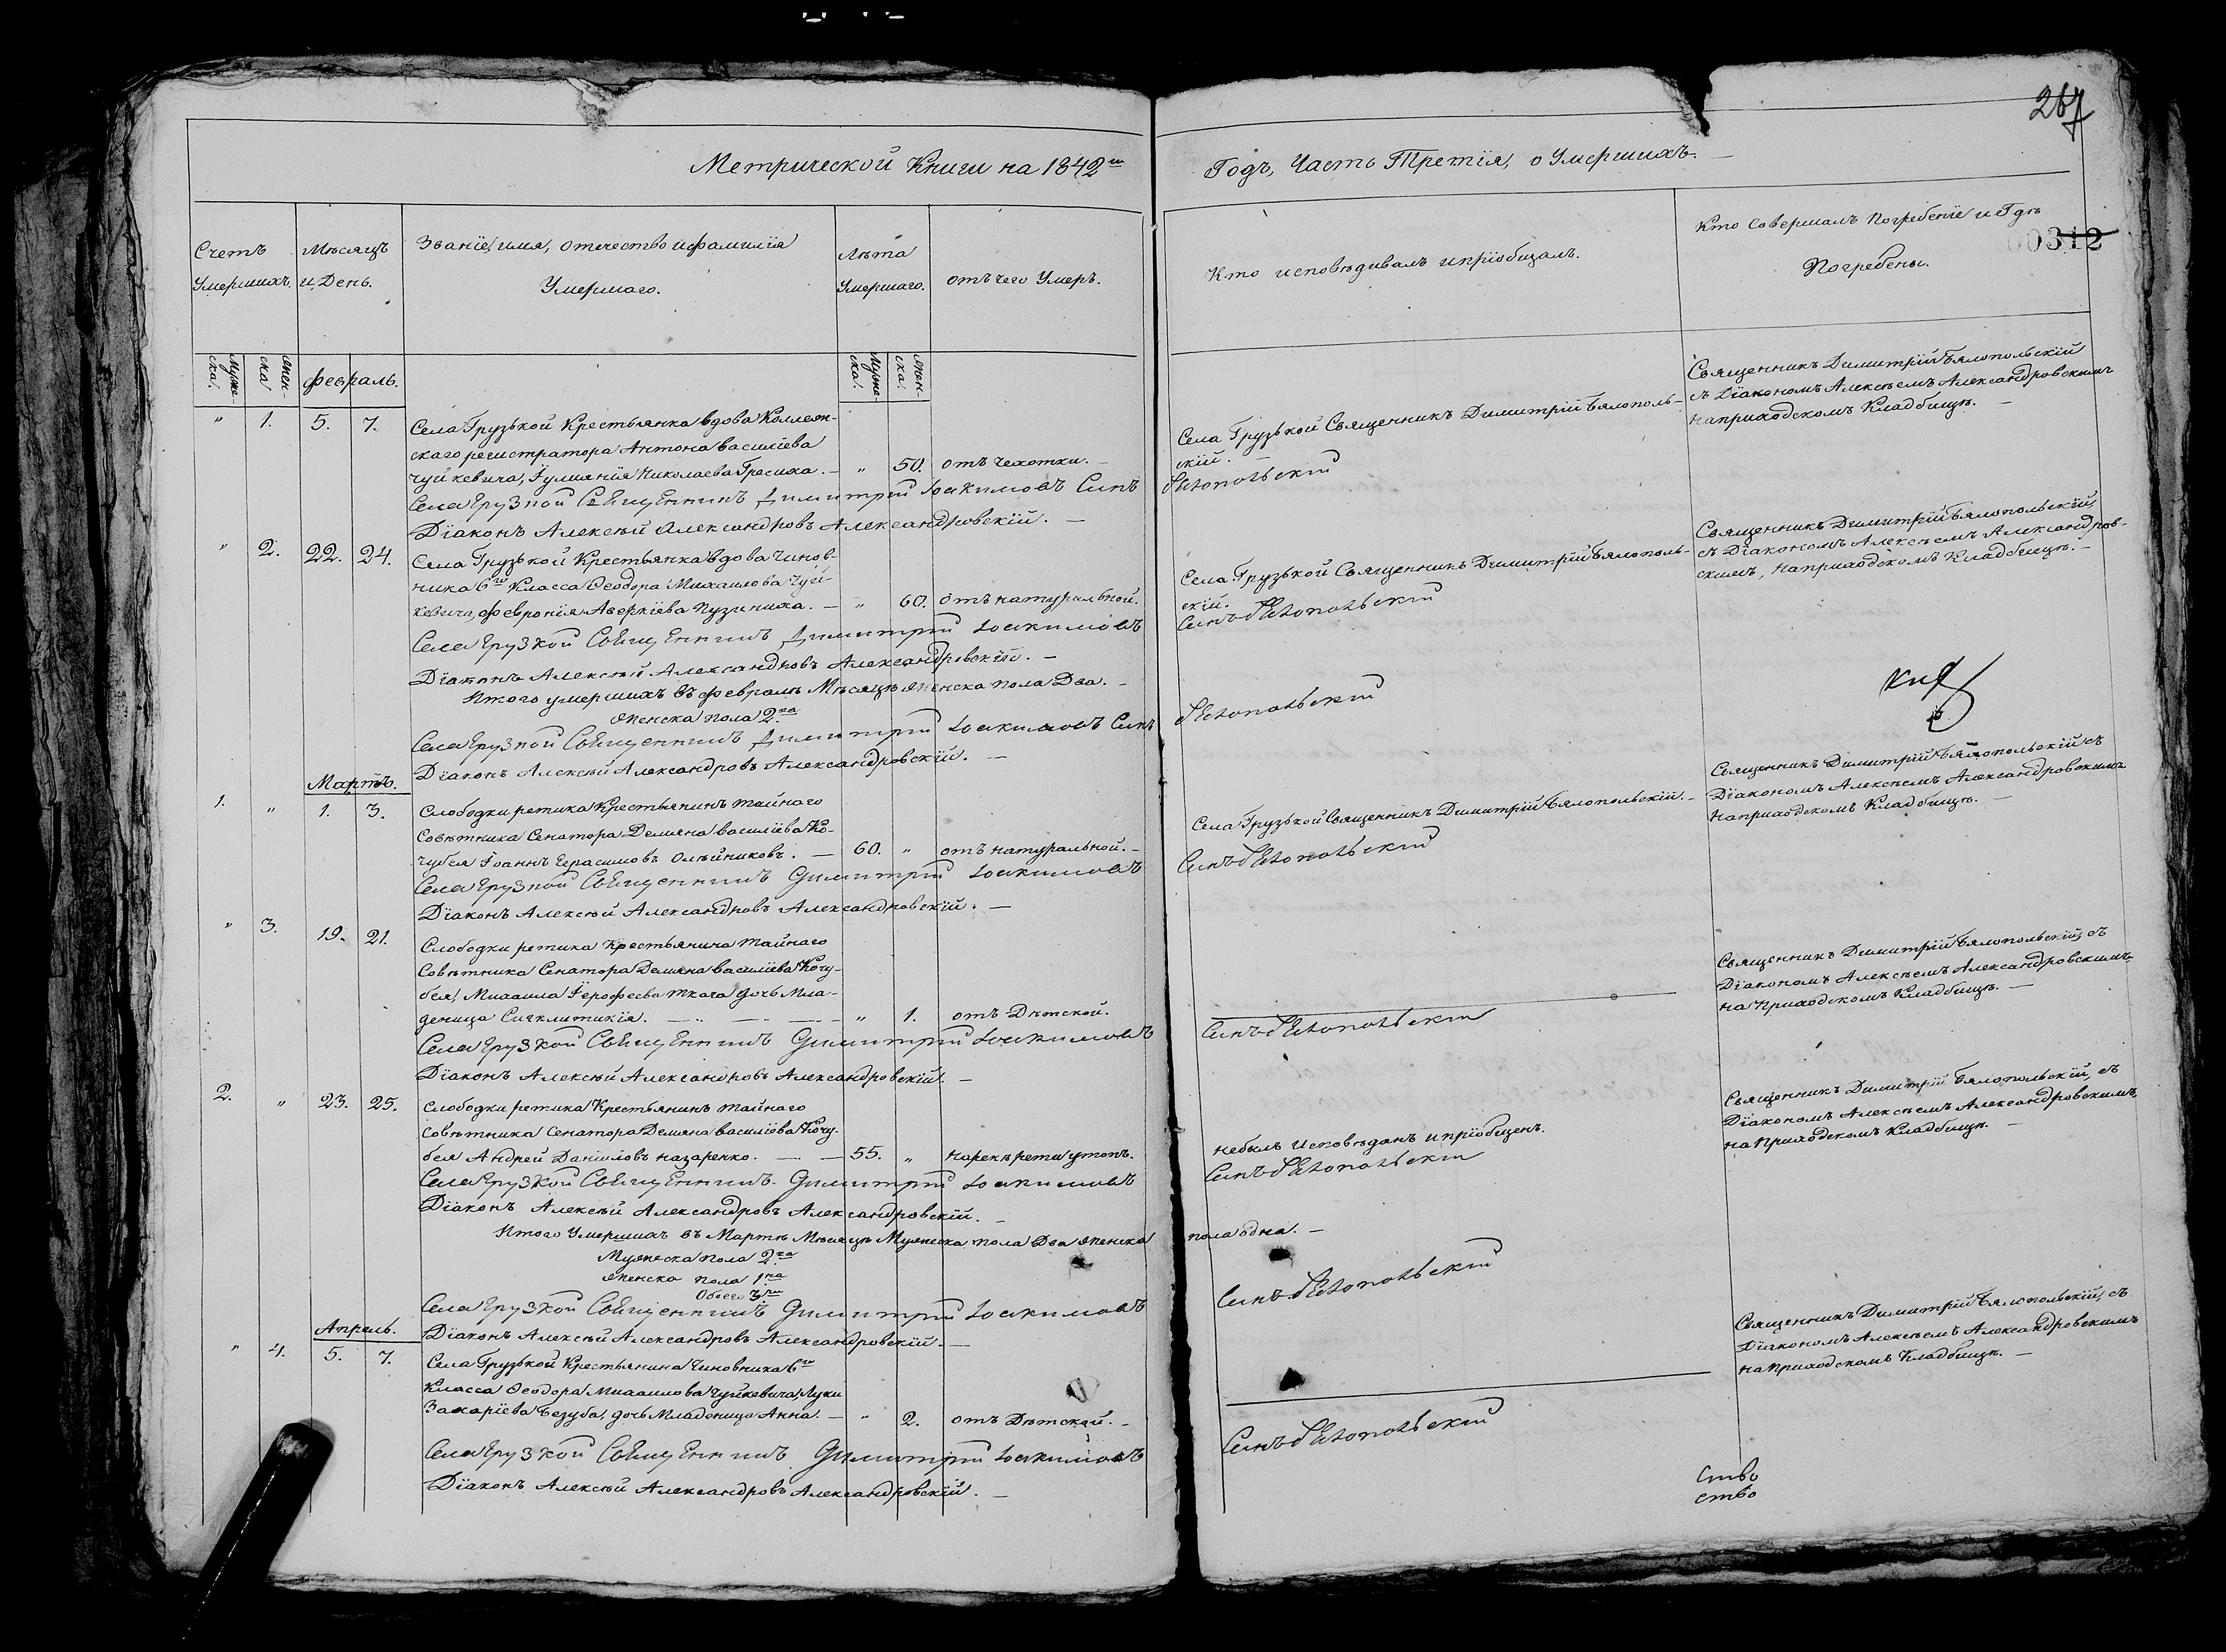 267
Метрической Книги на 1842й Годъ, Часть Третія, о Умершихъ.
00312
Счетъ Умершихъ.
Мѣсяцъ и День.
Званіе, имя, отечество и фамилія Умершаго.
Лѣта Умершаго.
Отъ чего Умеръ.
Кто исповѣдивалъ и пріобщалъ.
Кто Совершалъ Погребеніе и Гдѣ Погребены.
Муже-ска.
Женска
февраль.
Муже-ска.
Женска.
" 1. 5. 7. Села Грузькой Крестьянка вдова Коллеж-
скаго регистратора Антона Василіева
Чуйкевича, Николаева . — " 50. отъ чехотки. —
Села Грузькой Священникъ Димитрій Бялополь-
скій. —
Священникъ Димитрій Бялопольскій
съ Діакономъ Алексѣемъ Александровскимъ
на приходскомъ Кладбищѣ. —
Села Грузкой Священникъ Димитрій Іоакимовъ Синъ Бѣлопольскій
Діаконъ Алексѣй Александровъ Александровскій. —
" 2. 22. 24. Села Грузькой Крестьянка вдова Чинов-
ника 6го Класса Ѳеодора Михаилова Чуй-
кевича, Февронія Аверкіева Пузиниха. — " 60. Отъ натуральной.
Села Грузькой Священникъ Димитрій Бялополь-
скій.
Священникъ Димитрій Бялопольскій,
съ Діакономъ Алексѣемъ Александров-
скимъ, на приходскомъ Кладбищѣ. —
Села Грузкой Священникъ Димитрій Іоакимовъ Синъ Бѣлопольскій
Діаконъ Алексѣй Александровъ Александровскій. —
Итого умершихъ въ Февралѣ Мѣсяцѣ женска пола Два. —
женска пола 2ва
Села Грузкой Священникъ Димитрій Іоакимовъ Синъ Бѣлопольскій
Діаконъ Алексѣй Александровъ Александровскій. —
Мартъ.
1. " 1. 3. Слободки ретика Крестьянинъ тайнаго
Совѣтника Сенатора Демяна Василіева Ко-
чубея Іоаннъ Герасимовъ Олѣйниковъ. — 60. " отъ натуральной. —
Села Грузькой Священникъ Димитрій Бялопольскій. —
Священникъ Димитрій Бялопольскій съ
Діакономъ Алексѣемъ Александровскимъ
на приходскомъ Кладбищѣ. —
Села Грузкой Священникъ Димитрій Іоакимовъ Синъ Бѣлопольскій
Діаконъ Алексѣй Александровъ Александровскій. —
" 3. 19. 21. Слободки ретика Крестьянина тайнаго
Совѣтника Сенатора Демяна Василіева Кочу-
бея, Михаила Іерофеева Ткача дочь Мла-
деница Сигклитикія. — " 1. отъ Дѣтской.
Священникъ Димитрій Бялопольскій, съ
Діакономъ Алексѣемъ Александровскимъ
на Приходскомъ Кладбищѣ. —
Села Грузкой Священникъ Димитрій Іоакимовъ Синъ Бѣлопольскій
Діаконъ Алексѣй Александровъ Александровскій. —
2. " 23. 25. Слободки ретика Крестьянинъ тайнаго
совѣтника сенатора Демяна Василіева Кочу-
бея Андрей Даніиловъ Назаренко. — 55. " на рекѣ рети утопъ.
небылъ Исповѣданъ и пріобщенъ.
Священникъ Димитрій Бялопольскій, съ
Діакономъ Алексѣемъ Александровскимъ
на Приходскомъ Кладбищѣ. —
Села Грузкой Священникъ Димитрій Іоакимовъ Синъ Бѣлопольскій
Діаконъ Алексѣй Александровъ Александровскій. —
Итого Умершихъ въ Мартѣ Мѣсяцѣ Мужеска пола Два женска пола одна. —
Мужеска пола 2ва
женска пола 1на
Обоего 3ри
Села Грузкой Священникъ Димитрій Іоакимовъ Синъ Бѣлопольскій
Діаконъ Алексѣй Александровъ Александровскій. —
Апрель.
" 4. 5. 7. Села Грузькой Крестьянина Чиновника 6го
Класса Ѳеодора Михаилова Чуйкевича, Луки
Захаріева Безуба, дочь Младеница Анна. — " 2. отъ Дѣтской. —
Священникъ Димитрій Бялопольскій, съ
Діакономъ Алексѣемъ Александровскимъ
на Приходскомъ Кладбищѣ. —
Села Грузкой Священникъ Димитрій Іоакимовъ Синъ Бѣлопольскій
Діаконъ Алексѣй Александровъ Александровскій. —
ство
ство